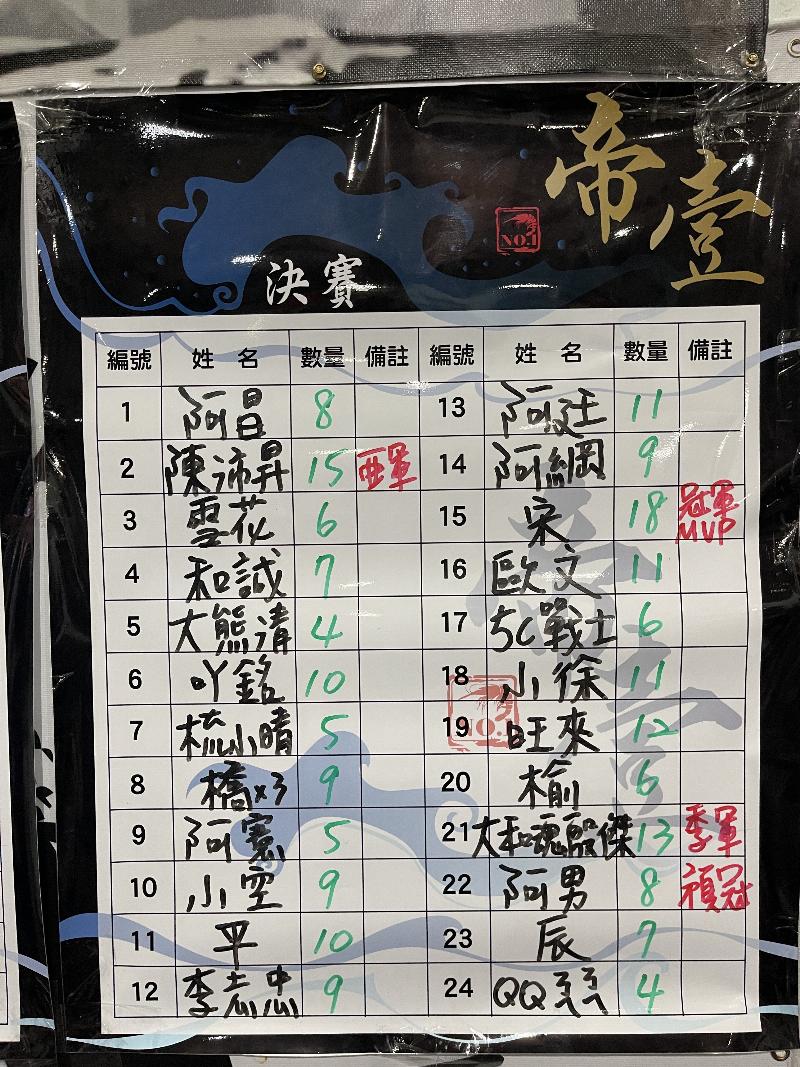 帝壹
NO.1
決賽
編號 姓名 數量 備註 編號 姓名 數量 備註
1 阿昌 8 13 阿廷 11
2 陳沛昇 15 亞軍 14 阿綱 9
3 雪花 6 15 宋 18 冠軍 MVP
4 和誠 7 16 歐文 11
5 大熊清 4 17 5C戰士 6
6 吖銘 10 18 小徐 11
7 梳小晴 5 19 旺來 12
8 橋x3 9 20 榆 6
9 阿憲 5 21 大和魂殷傑 13 季軍
10 小空 9 22 阿男 8 禎冠
11 平 10 23 辰 7
12 李志忠 9 24 QQ 4